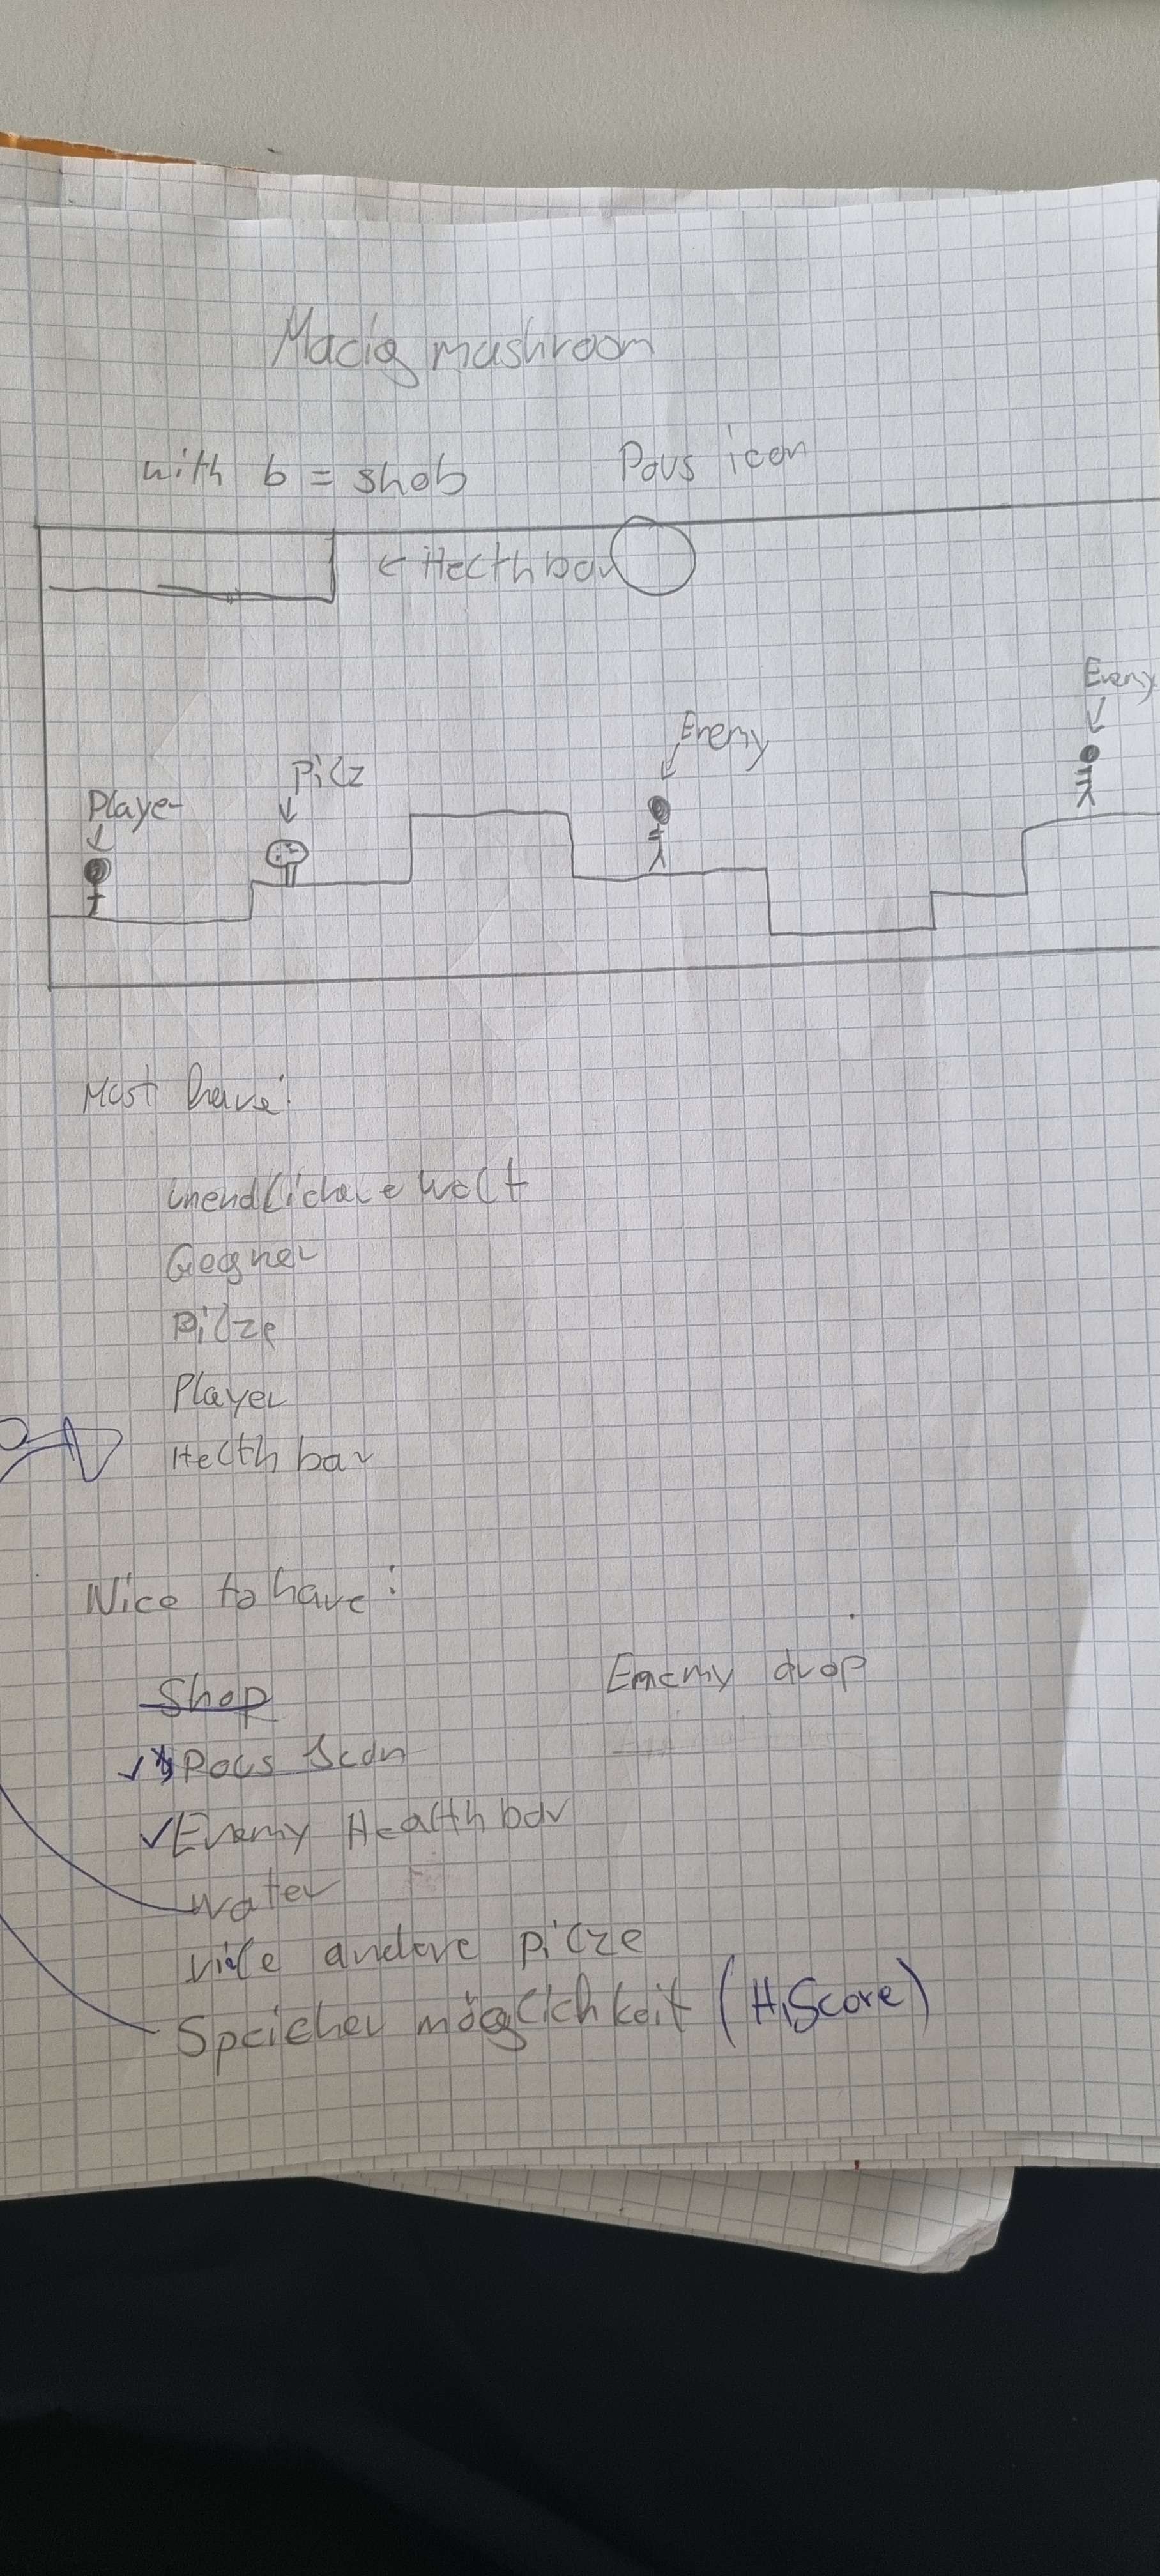 Macig mushroom
with b = shob
Paus icon
← Helthbar
Enemy
Enemy
Pilz
Player
Must have:
unendlichare Welt
Gegner
Pilze
Player
Helth bar
Nice to have:
Shop
Enemy drop
Paus Icon
Enemy Health bar
water
vile andere pilze
Speicher möglichkeit (HiScore)